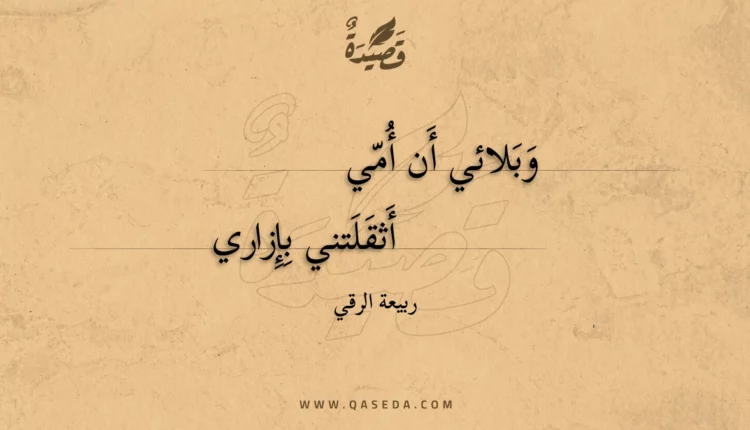 قَصِيْدَةٌ
وَبَلائي أَن أُمّي
أَثقَلَتني بِإِزاري
ربيعة الرقي
WWW.QASEDA.COM